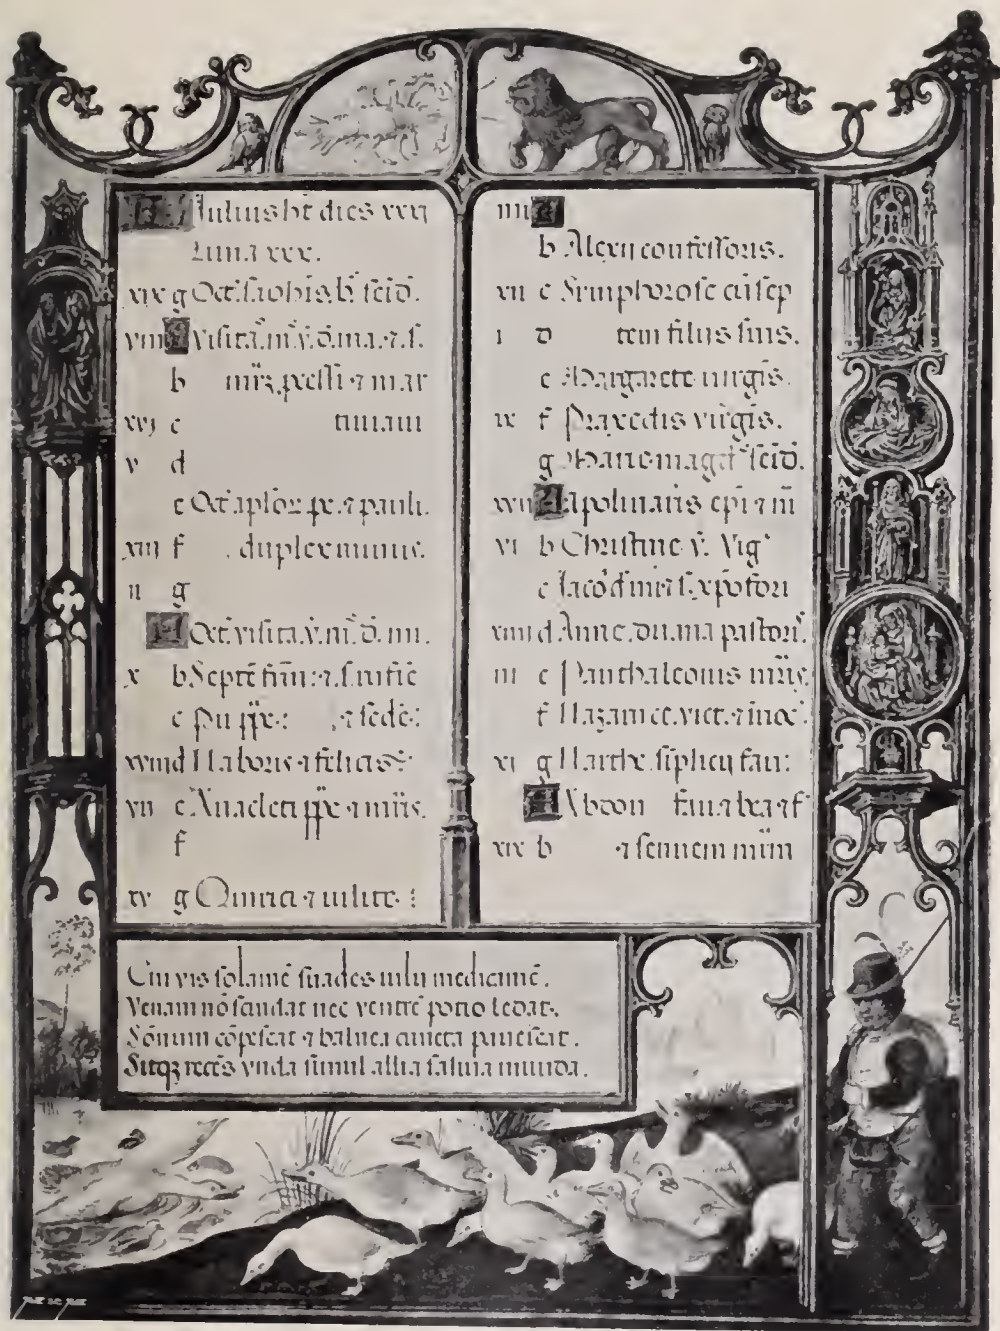 KL Julius ht dies xxxj
Luna xxx.
xix g Oct. s. iohis. b. scid.
viii A Visita. m. v. d. ma. ⁊ s.
b mrz. pcessi ⁊ mar
xvj c tiniani
v d
e Oct. aplor. pe. ⁊ pauli.
xiii f duplex minus.
ii g
A Oct. visita. v. m. d. mi.
x b Septe fram: ⁊ s. rufie
c Pii ppe. : ⁊ secde:
xviii d Naboris ⁊ felicis
vii e Anacleti ppe ⁊ mris.
f
xv g Quirici ⁊ iulite :
iiii A
b Alexii confessoris.
xii c Simphorose cu sep
i d tem filiis suis.
e Margarete virgis.
ix f Praxedis virgis.
g Marie magd scid.
xvii A Apolinaris epi ⁊ m
vi b Christine v. Vig
c Jaco d mi ⁊ s. xpofori
xiiii d Anne. du. ma pastori.
iii e Panthaleonis mris.
f Nazarii ce. vict. ⁊ inoc.
xi g Marthe. siplicii fau:
A Abdon fau ⁊ bea ⁊ f
xix b ⁊ sennem mrm
Cui vis solame suades iulii medicinne.
Venam no scindat nec ventre potio ledat.
Somnum copescat ⁊ balnea cuncta pavescat.
Sitqz recēs vnda simul allia salvia munda.